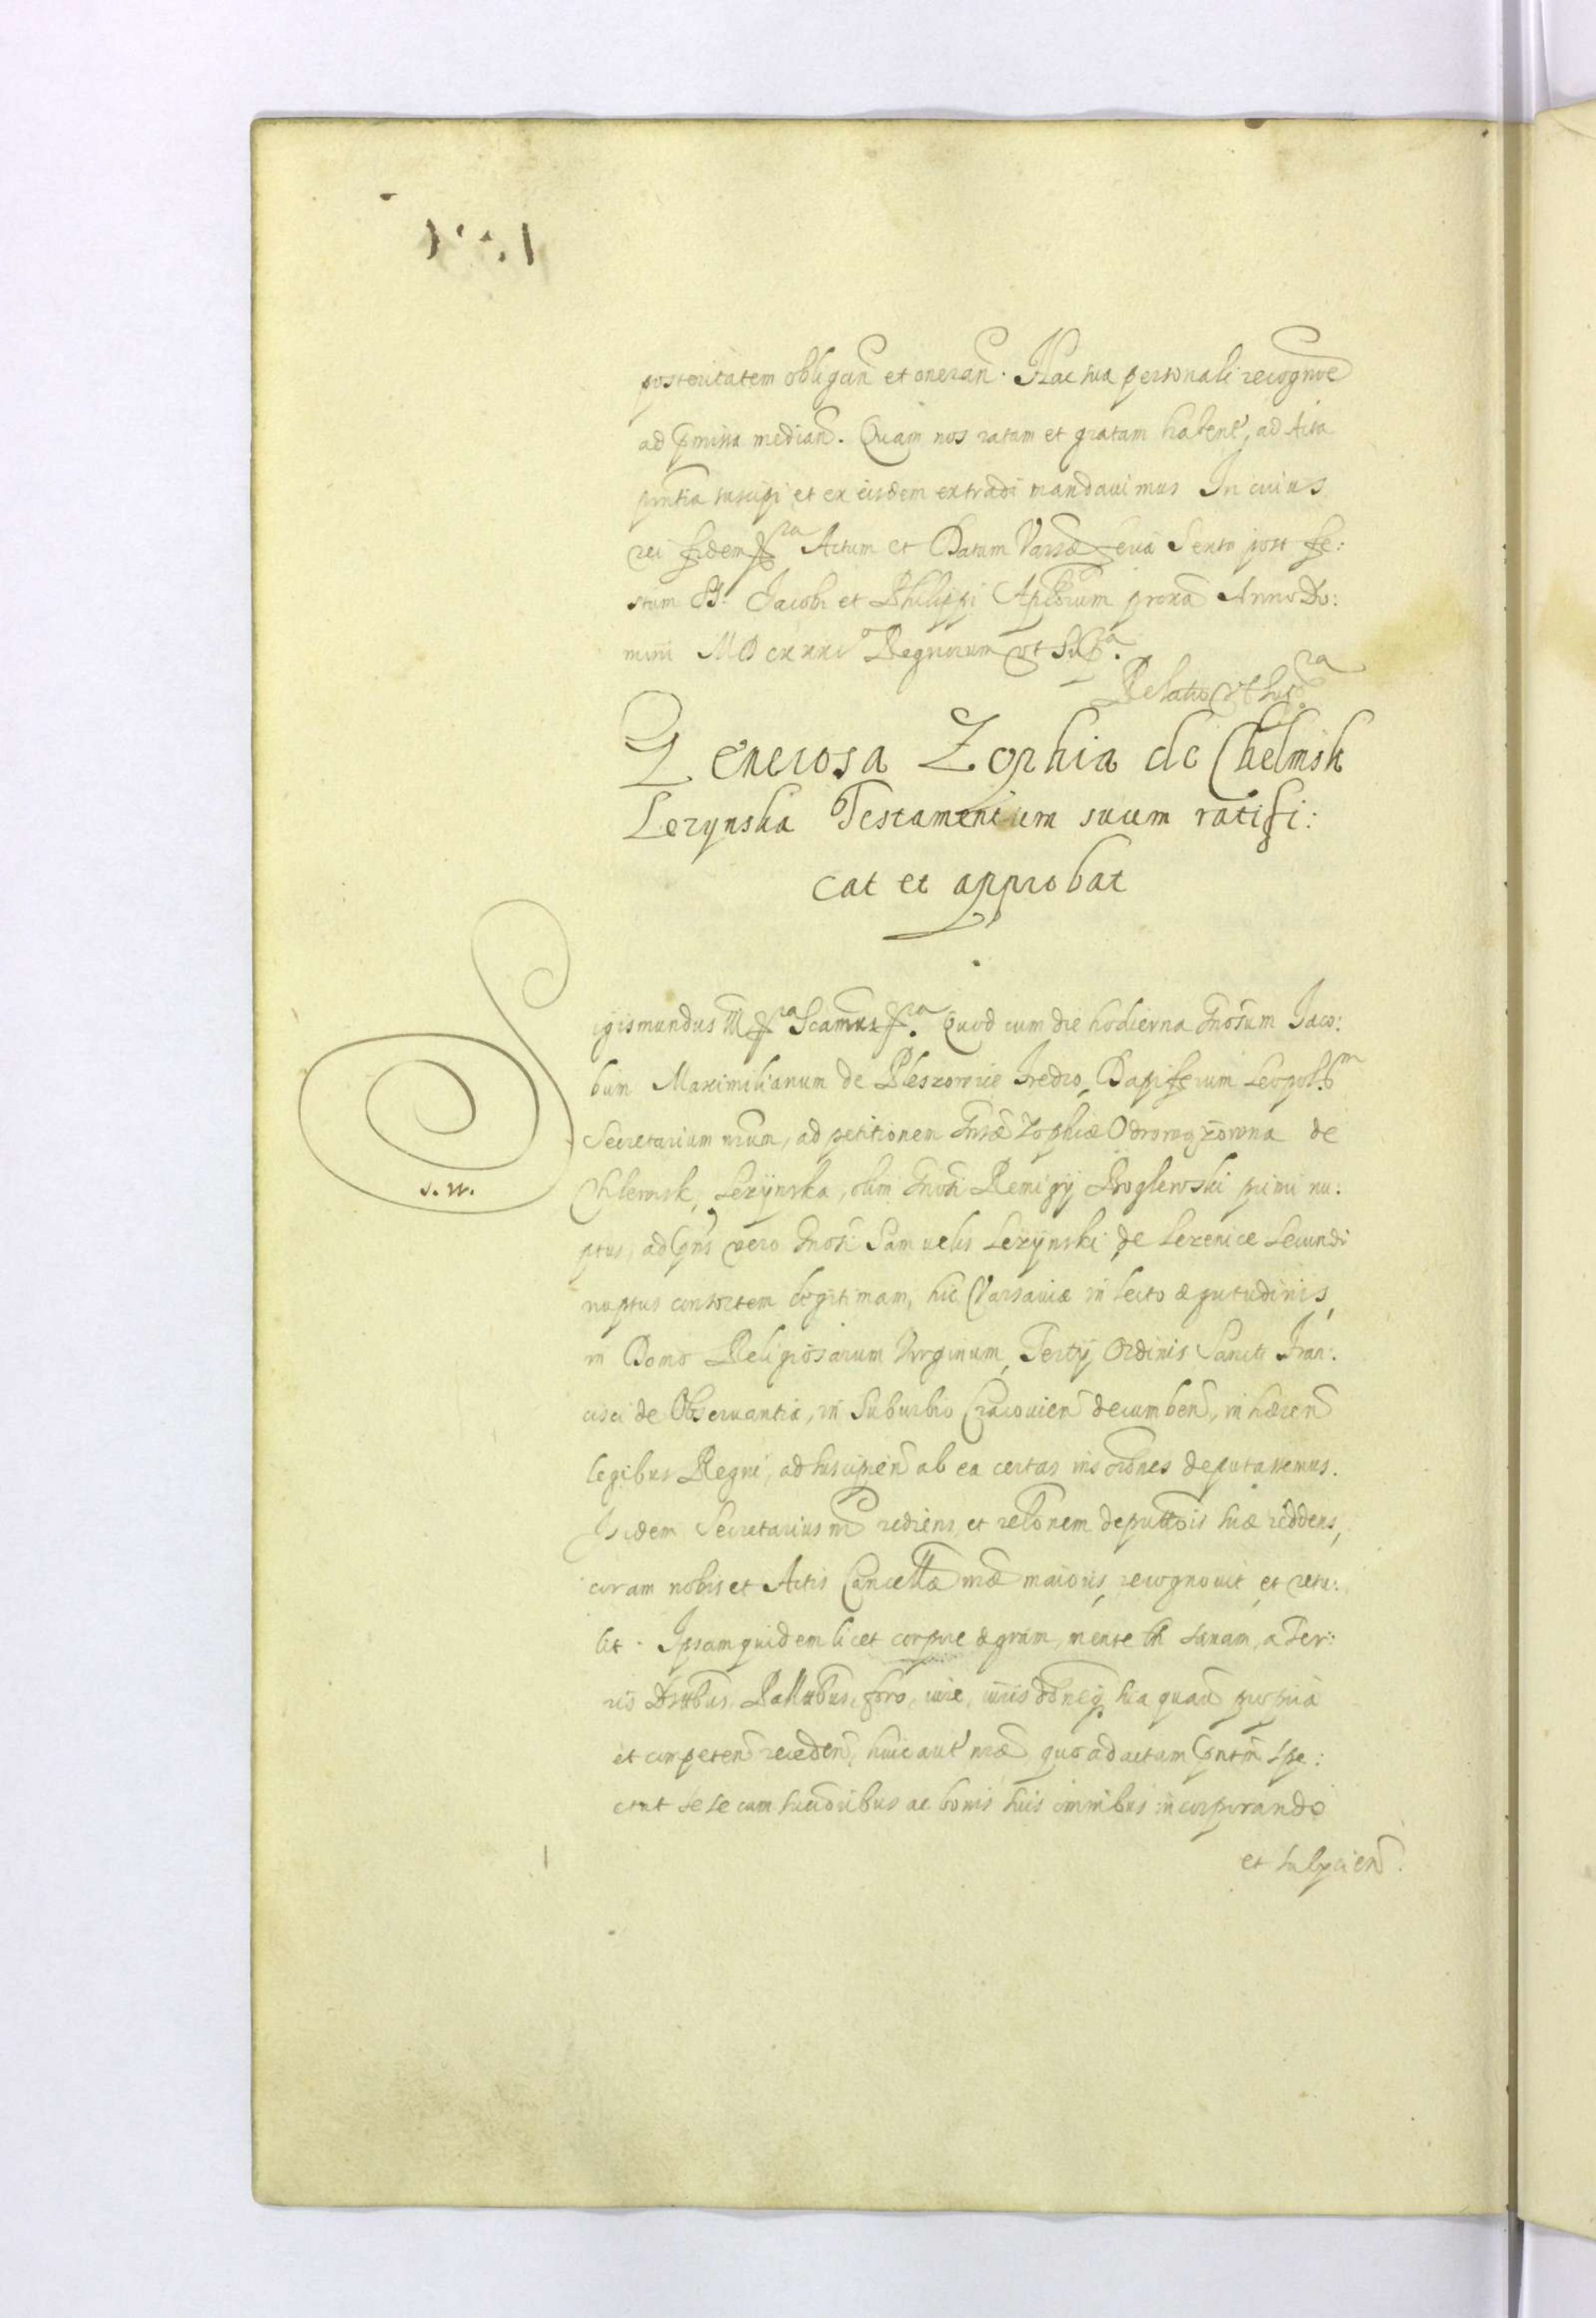 posteritatem obligan̄ et oneran̄. Hac sua personali recognoē
ad p̄missa median̄. Quam nos ratam et gratam haben̄, ad Acta
pn̄tia suscipi, et ex eisdem extradi mandauimus In cuius
rei fidem Actum et Datum Varsae feria Sexta post fe:
stum B. Jacobi et Philippi Aplōrum proxā Anno Do:
mini MDCXXXI Regnorum vt Supra.
Relatio vt supra
Generosa Zophia de Chelmsk
Lezynska Testamentum suum ratifi:
cat et approbat
Sigismundus III Quod cum die hodierna Gnōsum Jaco:
bum Maximilianum de Pleszowice Fredro, Dapiferum Leopol.
Secretarium nrūm, ad petitionem Gnsae Zophiae Odrowązowna de
Chlemsk, Lezynska, olim Gnōsi Remigij Proglewski primi nu:
ptus, ad pn̄s vero Gnōsi Samuelis Lezynski de Lezenice secundi
nuptus consortem legitimam, hic Varsauiae in lecto aegritudinis,
in Domo Religiosarum Virginum, Tertij Ordinis Sancti Fran:
cisci de Obseruantia, in Suburbio Cracouien̄ decumben̄, inhaeren̄
legibus Regni, ad suscipien̄ ab ea certas inscrōnes deputassemus.
Isidem Secretarius nr̄ rediens, et relōnem deputtōis suae reddens,
coram nobis et Actis Cancellae nrāe maioris, recognouit, et retu:
lit. Ipsam quidem licet corpore aegram, mente tn̄ sanam, a Ter:
ris Dsttbus, Pallatibus, foro, iure, iurisdōneq, sua quauis propria
et competen̄ receden̄, huic aut nrāe quo ad actum pn̄tem spe:
ctat sese cum succrībus ac bonis suis omnibus incorporando
et subijcien̄.
s. w.